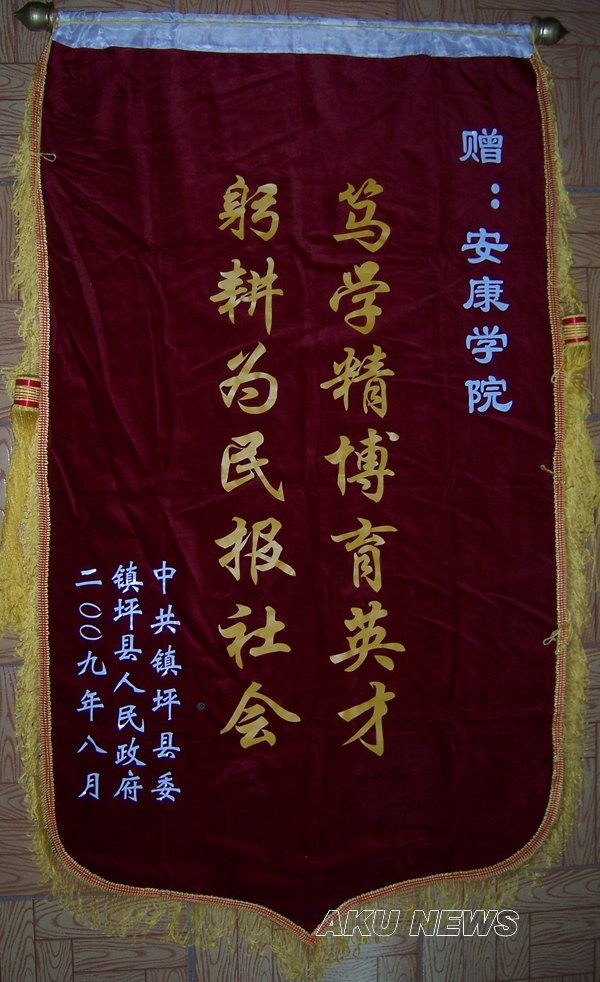 赠：安康学院
笃学精博育英才
躬耕为民报社会
中共镇坪县委
镇坪县人民政府
二〇〇九年八月
AKU NEWS